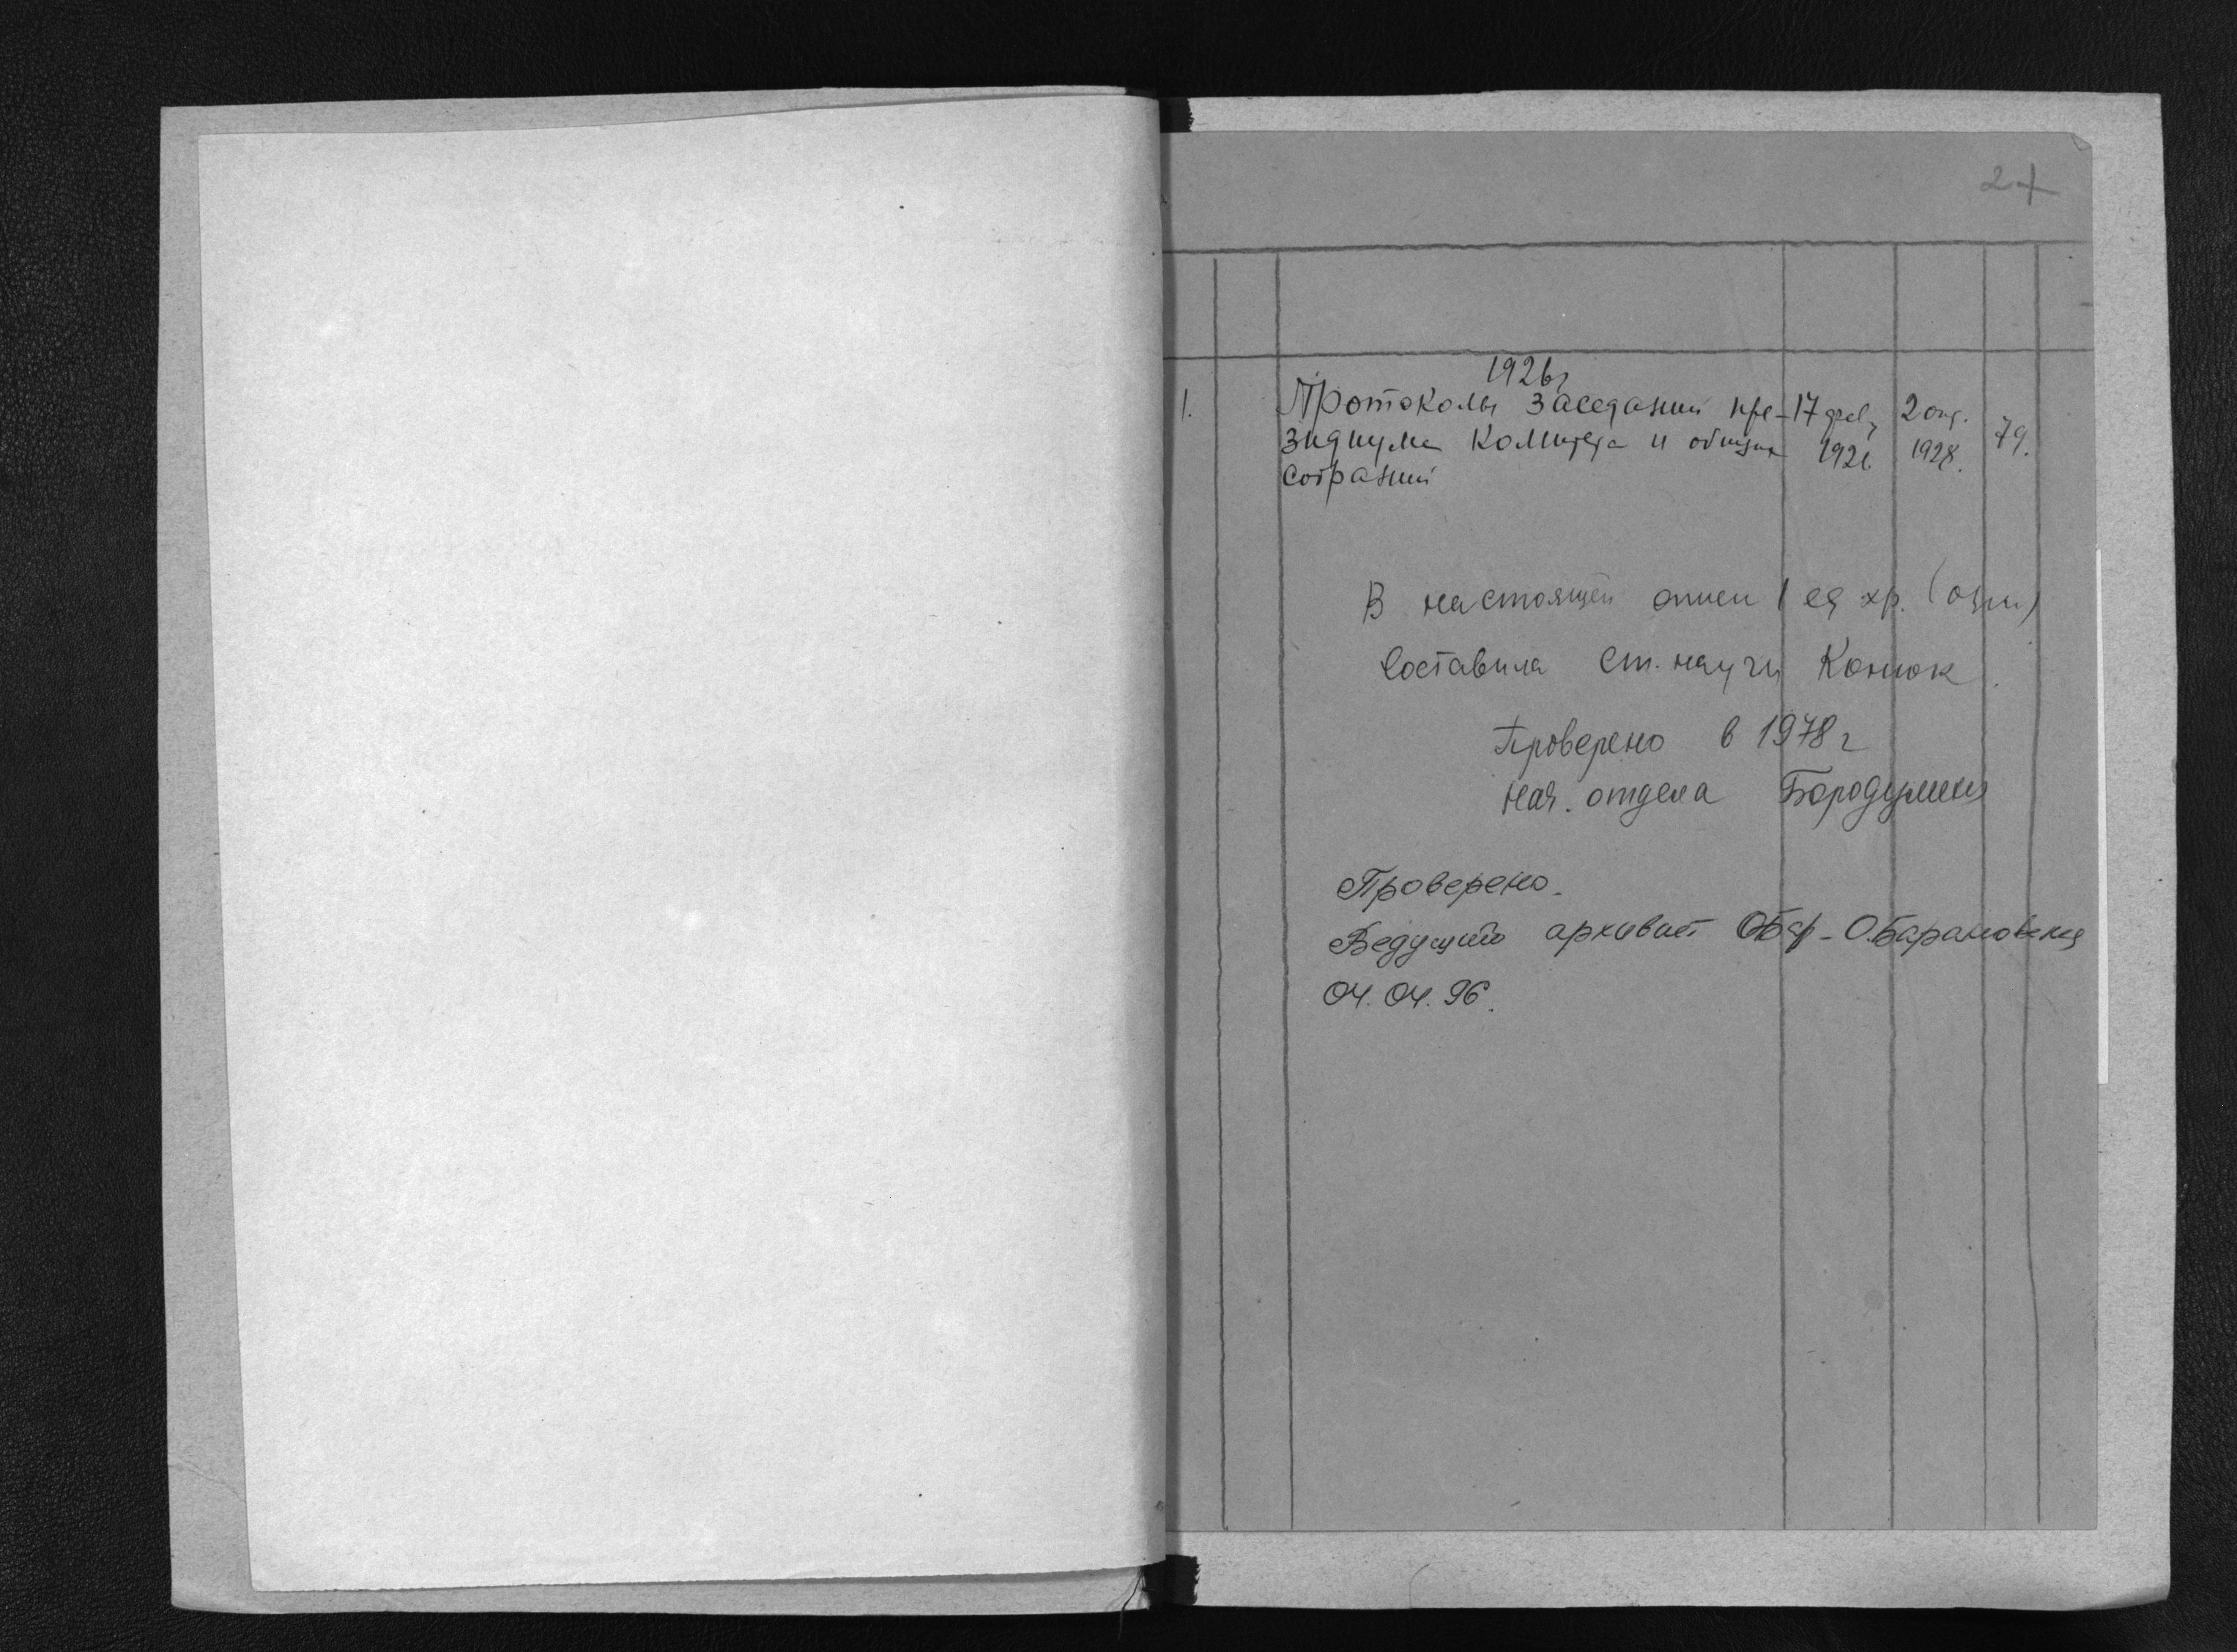 2
1926г
1. Протоколы заседаний пре- 17 фев. 2 окт. 79.
зидиума комитета и общих 1926. 1928.
собраний
В настоящей описи 1 ед хр. (один)
Составила Ст. научн Конюк.
Проверено в 1978 г
Нач. отдела
Проверено.
Ведущий архивист О.Барановская
04.04.96.